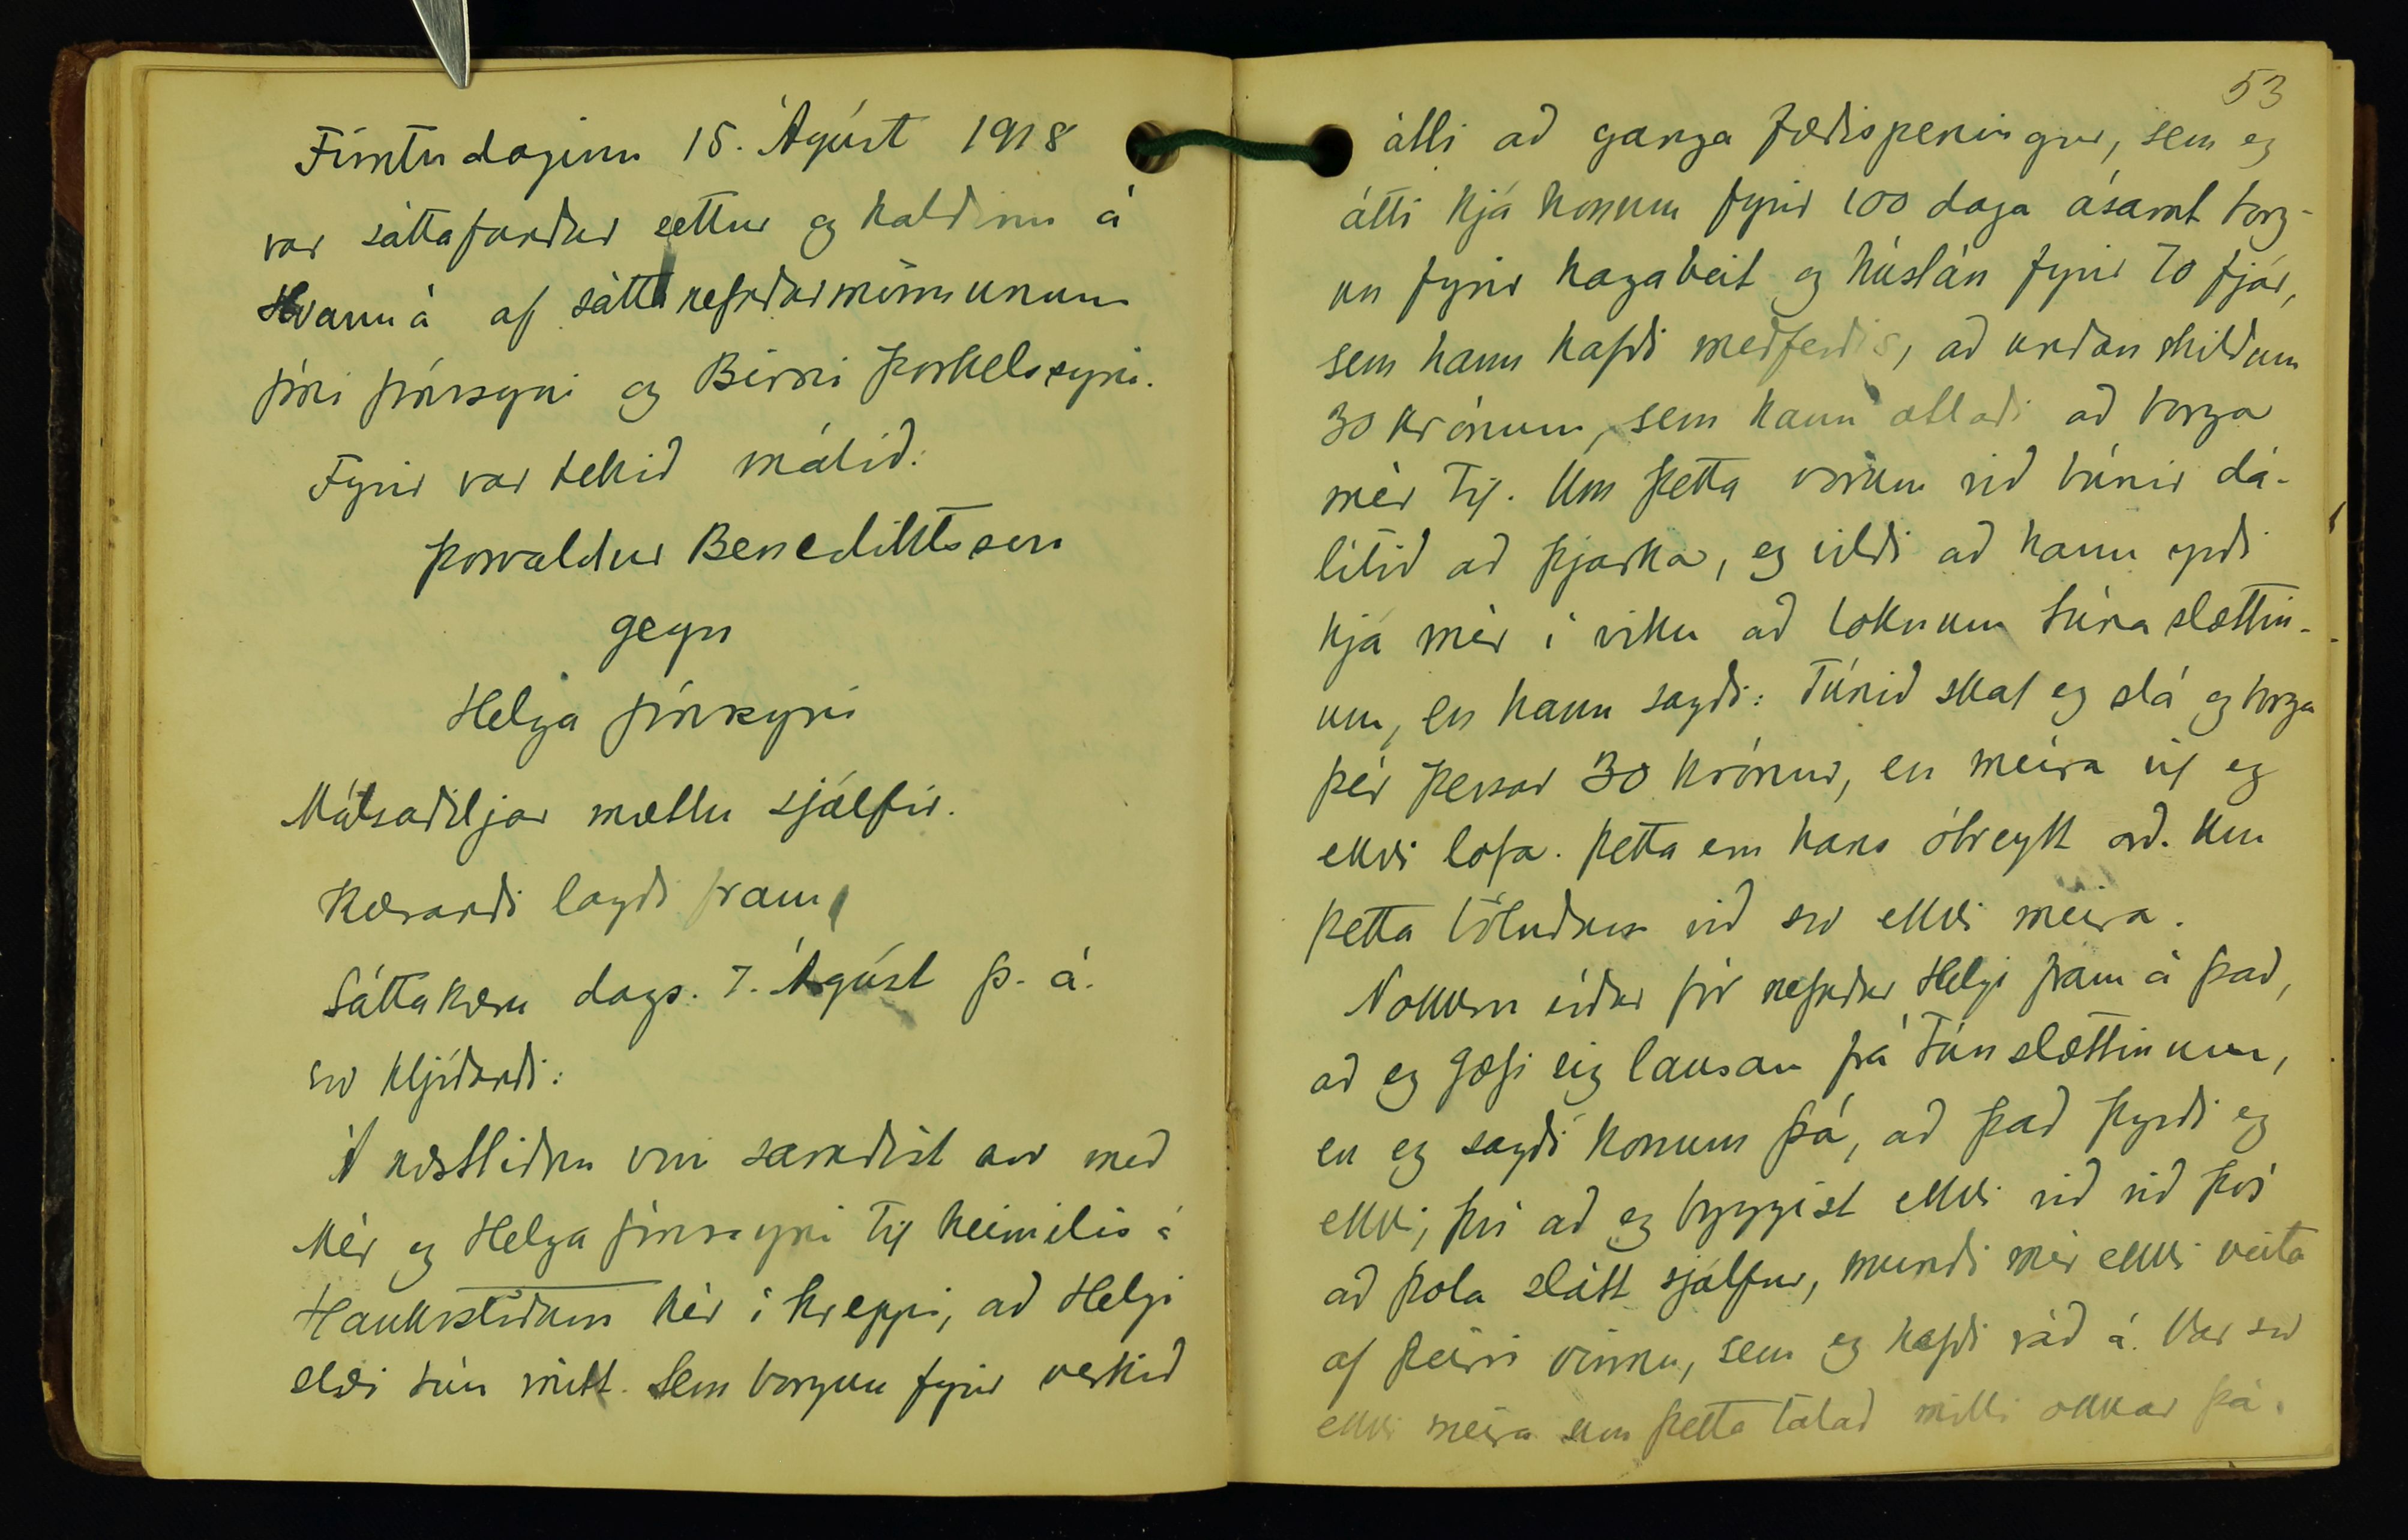 Fimtudaginn 15. Ágúst 1918
var sáttafundur settur og haldinn á
Hvanná af sáttanefndarmönnunum
Jóni Jónssyni og Birni Þorkelssyni.
Fyrir var tekið málið:
Þorvaldur Benediktsson
gegn
Helga Jónssyni
Málsaðiljar mættu sjálfir.
Kærandi lagði fram
Sáttakæru dags. 7. Ágúst þ. á.
svo hljóðandi:
Á næstliðnu vori samdist svo með
Mér og Helga Jónssyni til heimilis á
Haukstöðum hér í hreppi, að Helgi
slæi tún mitt. Sem borgun fyrir verkið
53
átti að ganga fæðispeningur, sem eg
átti hjá honum fyrir 100 daga ásamt borg-
un fyrir hagabeit og húslán fyrir 70 fjár,
sem hann hafði meðferðis, að undanskildum
30 krónum, sem hann ætlaði að borga
mér til. Um þetta vorum við búnir dá-
lítið að þjarka, eg vildi að hann yrði
hjá mér í viku að loknum túnaslættin-
um, en hann sagði: Túnið skal eg slá og borga
þér þessar 30 krónur, en meira vil eg
ekki lofa. Þetta eru hans óbreytt orð. Um
þetta töluðum við svo ekki meira.
Nokkru síðar fór nefndur Helgi fram á það,
að eg gæfi sig lausan frá túnslættinum,
en eg sagði honum þá, að það þyrði eg
ekki, því að eg byggist ekki við við því
að þola slátt sjálfur, mundi mér ekki veita
af þeirri vinnu, sem eg hefði ráð á. Var svo
ekki meira um þetta talað milli okkar þá.